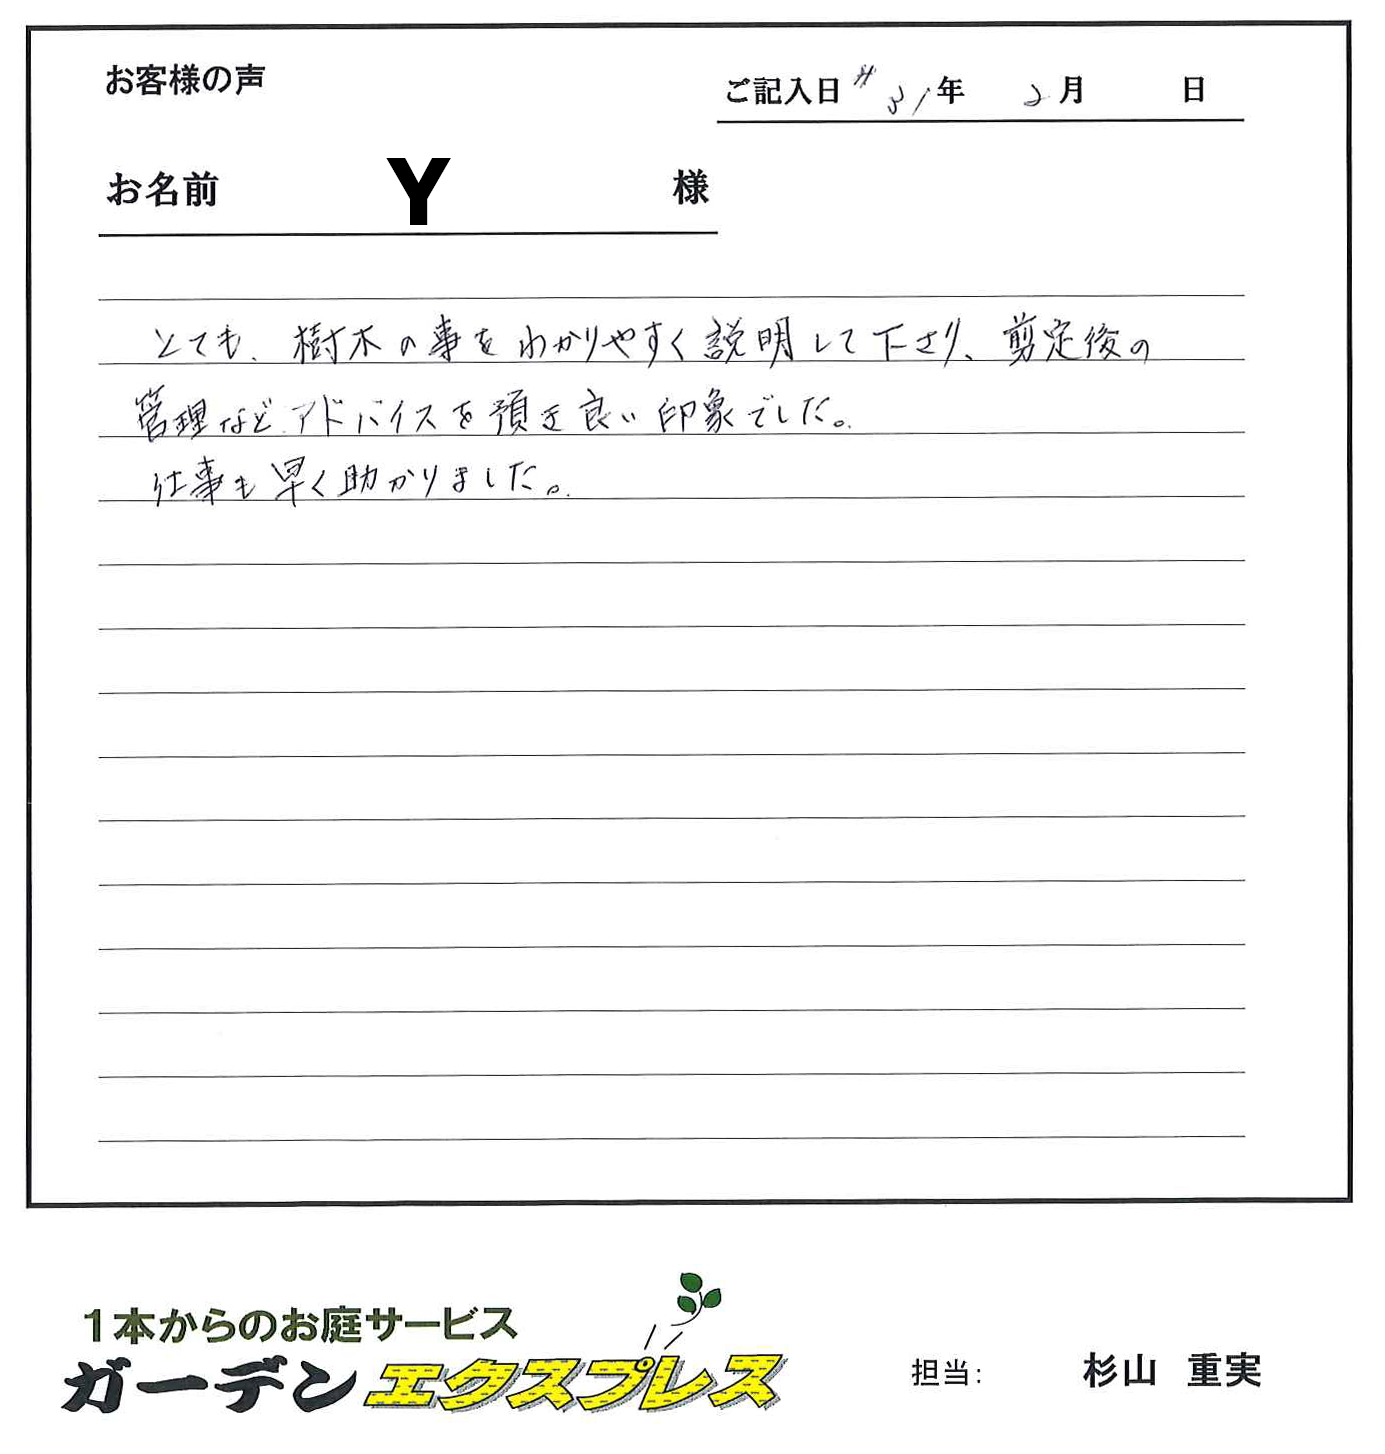 お客様の声
ご記入日 H31年 2月 日
お名前 Y 様
とても、樹木の事をわかりやすく説明して下さり、剪定後の
管理など、アドバイスを頂き良い印象でした。
仕事も早く助かりました。
1本からのお庭サービス
ガーデンエクスプレス
担当: 杉山 重実